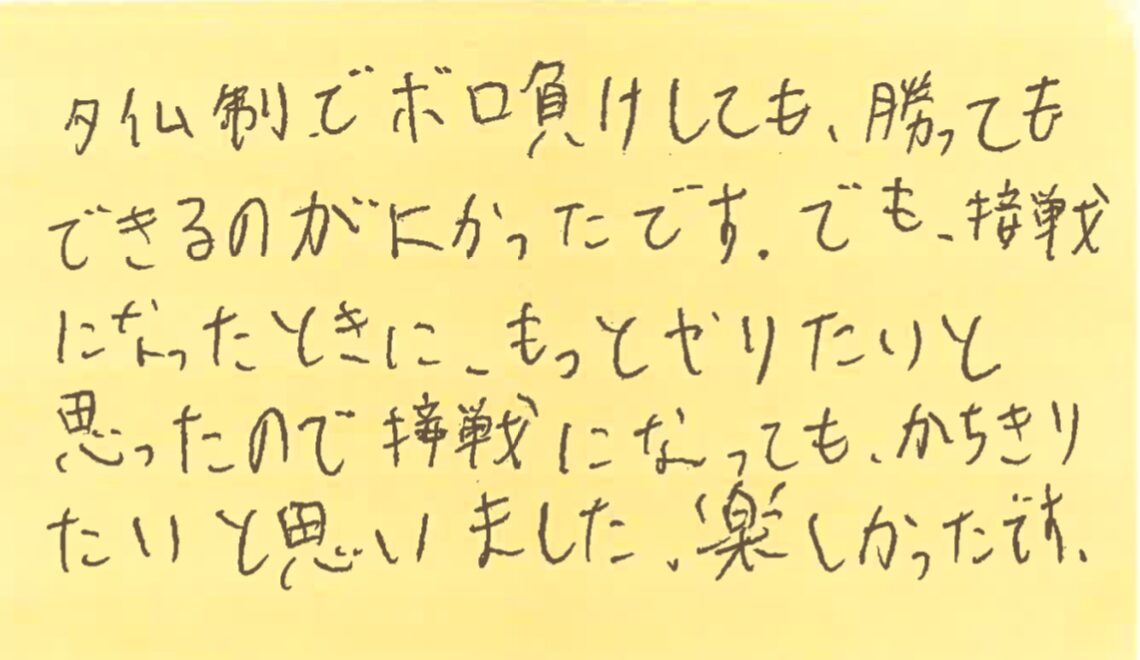 タイム制でボロ負けしても、勝っても
できるのがよかったです。でも、接戦
になったときに、もっとやりたいと
思ったので接戦になっても、かちきり
たいと思いました。楽しかったです。